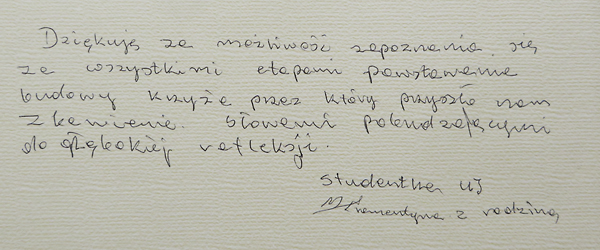 Dziękuję za możliwość zapoznania się
ze wszystkimi etapami powstawania
budowy krzyża przez który przyszło nam
zbawienie. Słowami pobudzającymi
do głębokiej refleksji.
studentka UJ
z rodziną